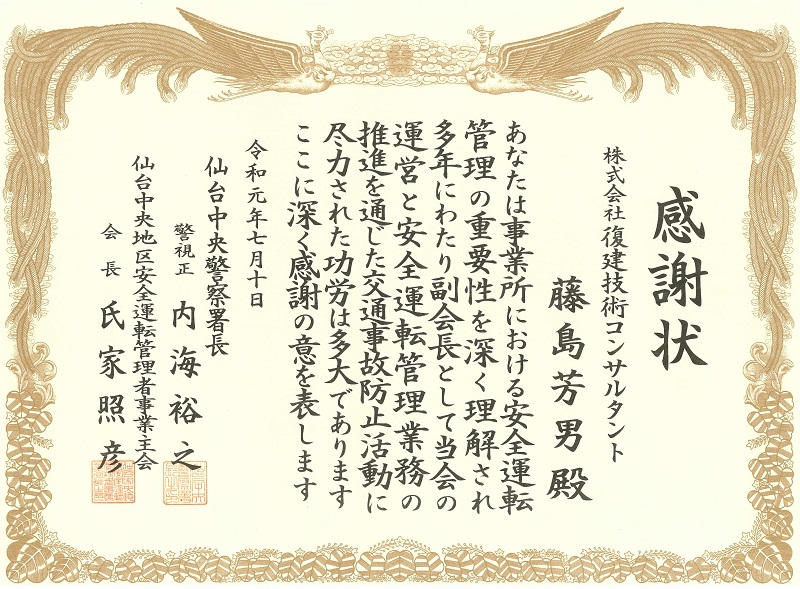 感謝状
株式会社 復建技術コンサルタント
藤島芳男 殿
あなたは事業所における安全運転
管理の重要性を深く理解され
多年にわたり副会長として当会の
運営と安全運転管理業務の
推進を通じた交通事故防止活動に
尽力された功労は多大であります
ここに深く感謝の意を表します
令和元年七月十日
仙台中央警察署長
警視正 内海裕之
仙台中央地区安全運転管理者事業主会
会長 氏家照彦